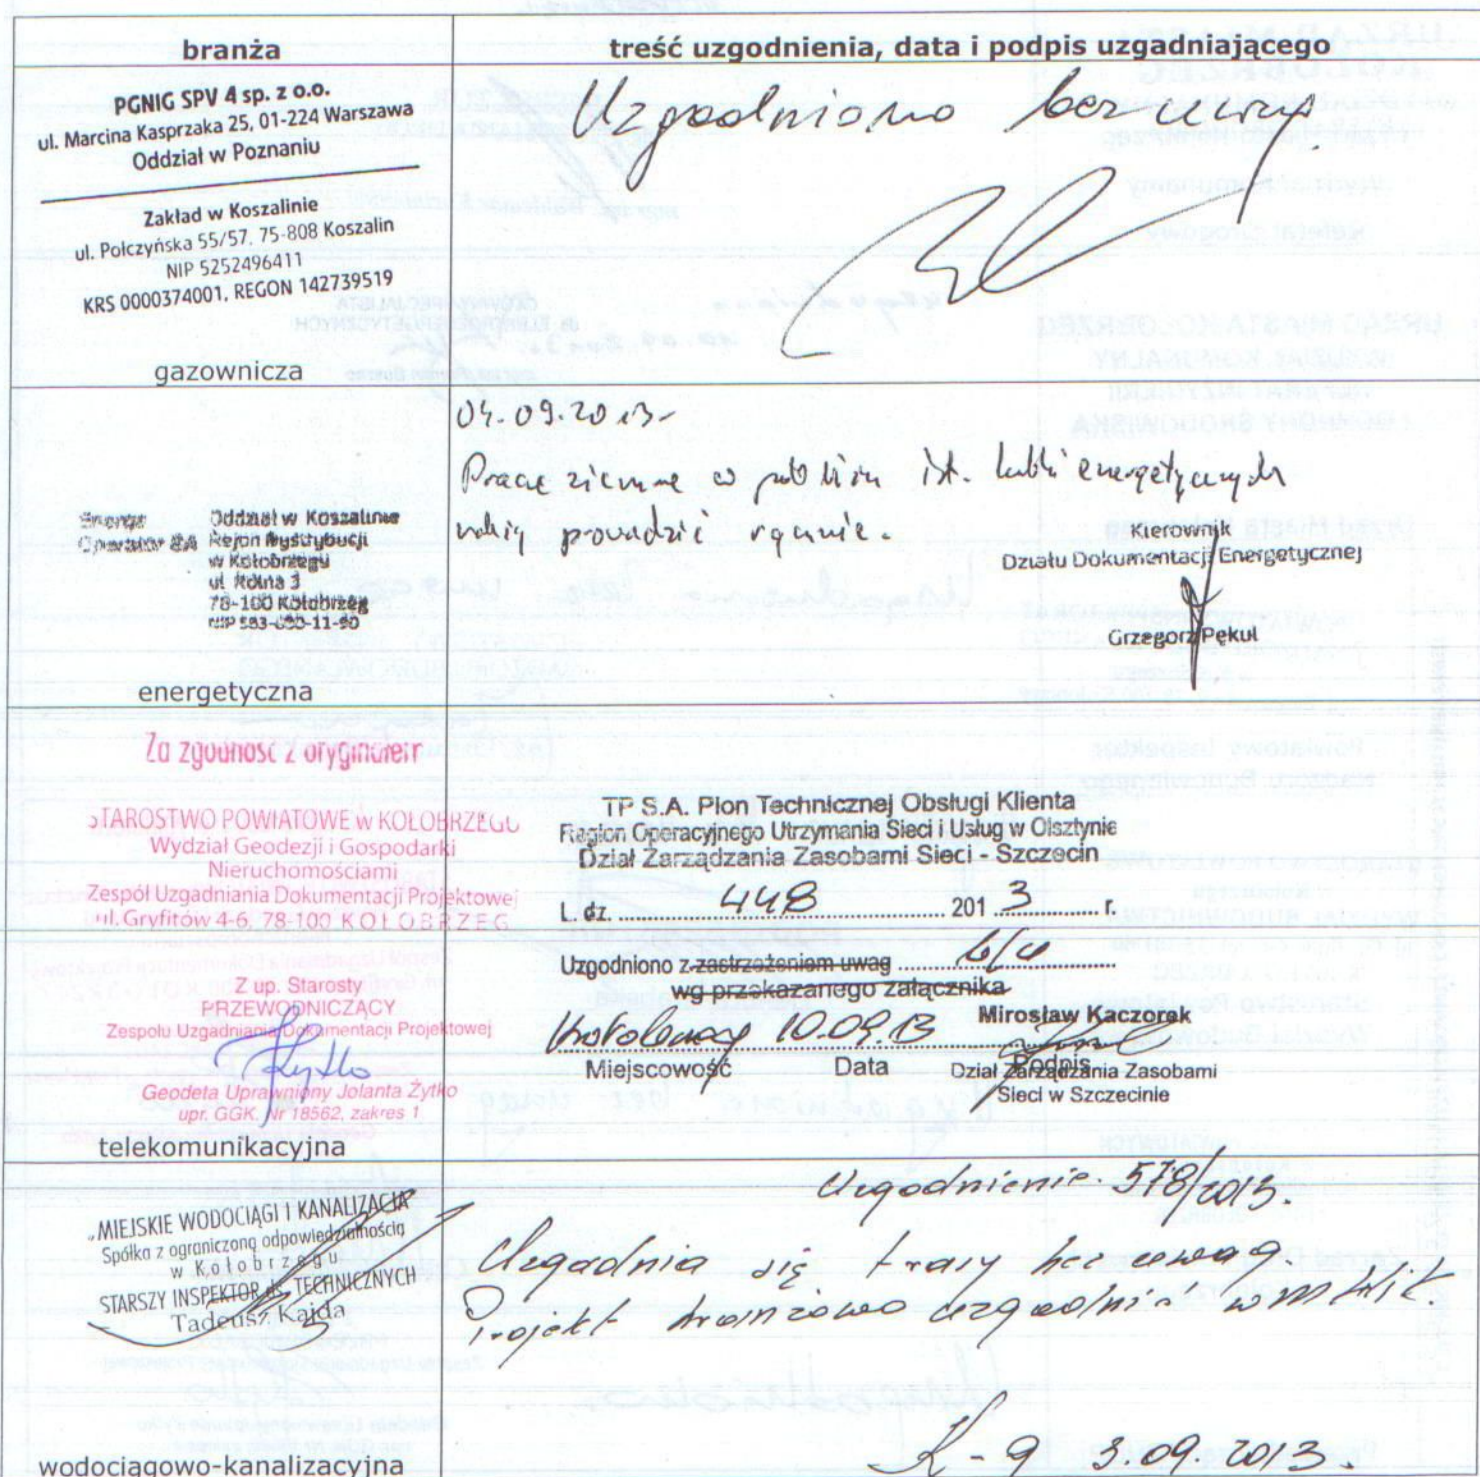 branża
treść uzgodnienia, data i podpis uzgadniającego
PGNIG SPV 4 sp. z o.o.
ul. Marcina Kasprzaka 25, 01-224 Warszawa
Oddział w Poznaniu
Zakład w Koszalinie
ul. Połczyńska 55/57, 75-808 Koszalin
NIP 5252496411
KRS 0000374001, REGON 142739519
gazownicza
Uzgodniono bez uwag
04.09.2013
Prace ziemne w pobliżu ist. kabli energetycznych
należy prowadzić ręcznie.
Kierownik
Działu Dokumentacji Energetycznej
Grzegorz Pękul
Energa Oddział w Koszalinie
Operator SA Rejon Dystrybucji
w Kołobrzegu
ul. Rolna 3
78-100 Kołobrzeg
energetyczna
Za zgodność z oryginałem
STAROSTWO POWIATOWE w KOŁOBRZEGU
Wydział Geodezji i Gospodarki
Nieruchomościami
Zespół Uzgadniania Dokumentacji Projektowej
ul. Gryfitów 4-6, 78-100 KOŁOBRZEG
Z up. Starosty
PRZEWODNICZĄCY
Zespołu Uzgadniania Dokumentacji Projektowej
Geodeta Uprawniony Jolanta Żytko
upr. GGK. Nr 18562, zakres 1.
telekomunikacyjna
TP S.A. Pion Technicznej Obsługi Klienta
Region Operacyjnego Utrzymania Sieci i Usług w Olsztynie
Dział Zarządzania Zasobami Sieci - Szczecin
L. dz. 448 2013 r.
Uzgodniono z zastrzeżeniem uwag b/u
wg przekazanego załącznika
10.09.13 Mirosław Kaczorek
Miejscowość Data Podpis
Dział Zarządzania Zasobami
Sieci w Szczecinie
„MIEJSKIE WODOCIĄGI I KANALIZACJA"
Spółka z ograniczoną odpowiedzialnością
w Kołobrzegu
STARSZY INSPEKTOR ds. TECHNICZNYCH
Tadeusz Kajda
wodociągowo-kanalizacyjna
Uzgodnienie 578/2013.
Uzgadnia się trasy
Projekt branżowo uzgodnić w MWiK
K-g 3.09.2013.